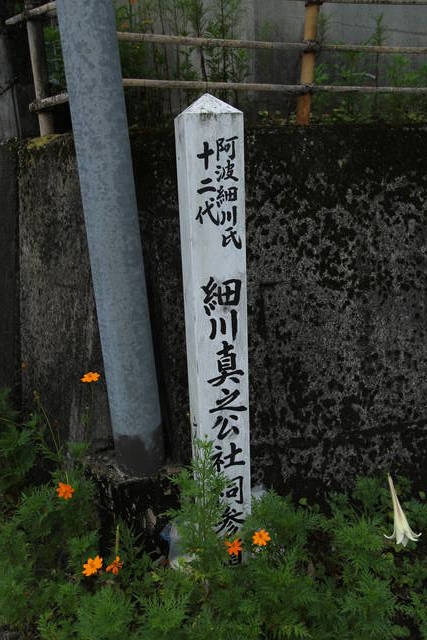 阿波細川氏
十二代
細川真之公社祠参道